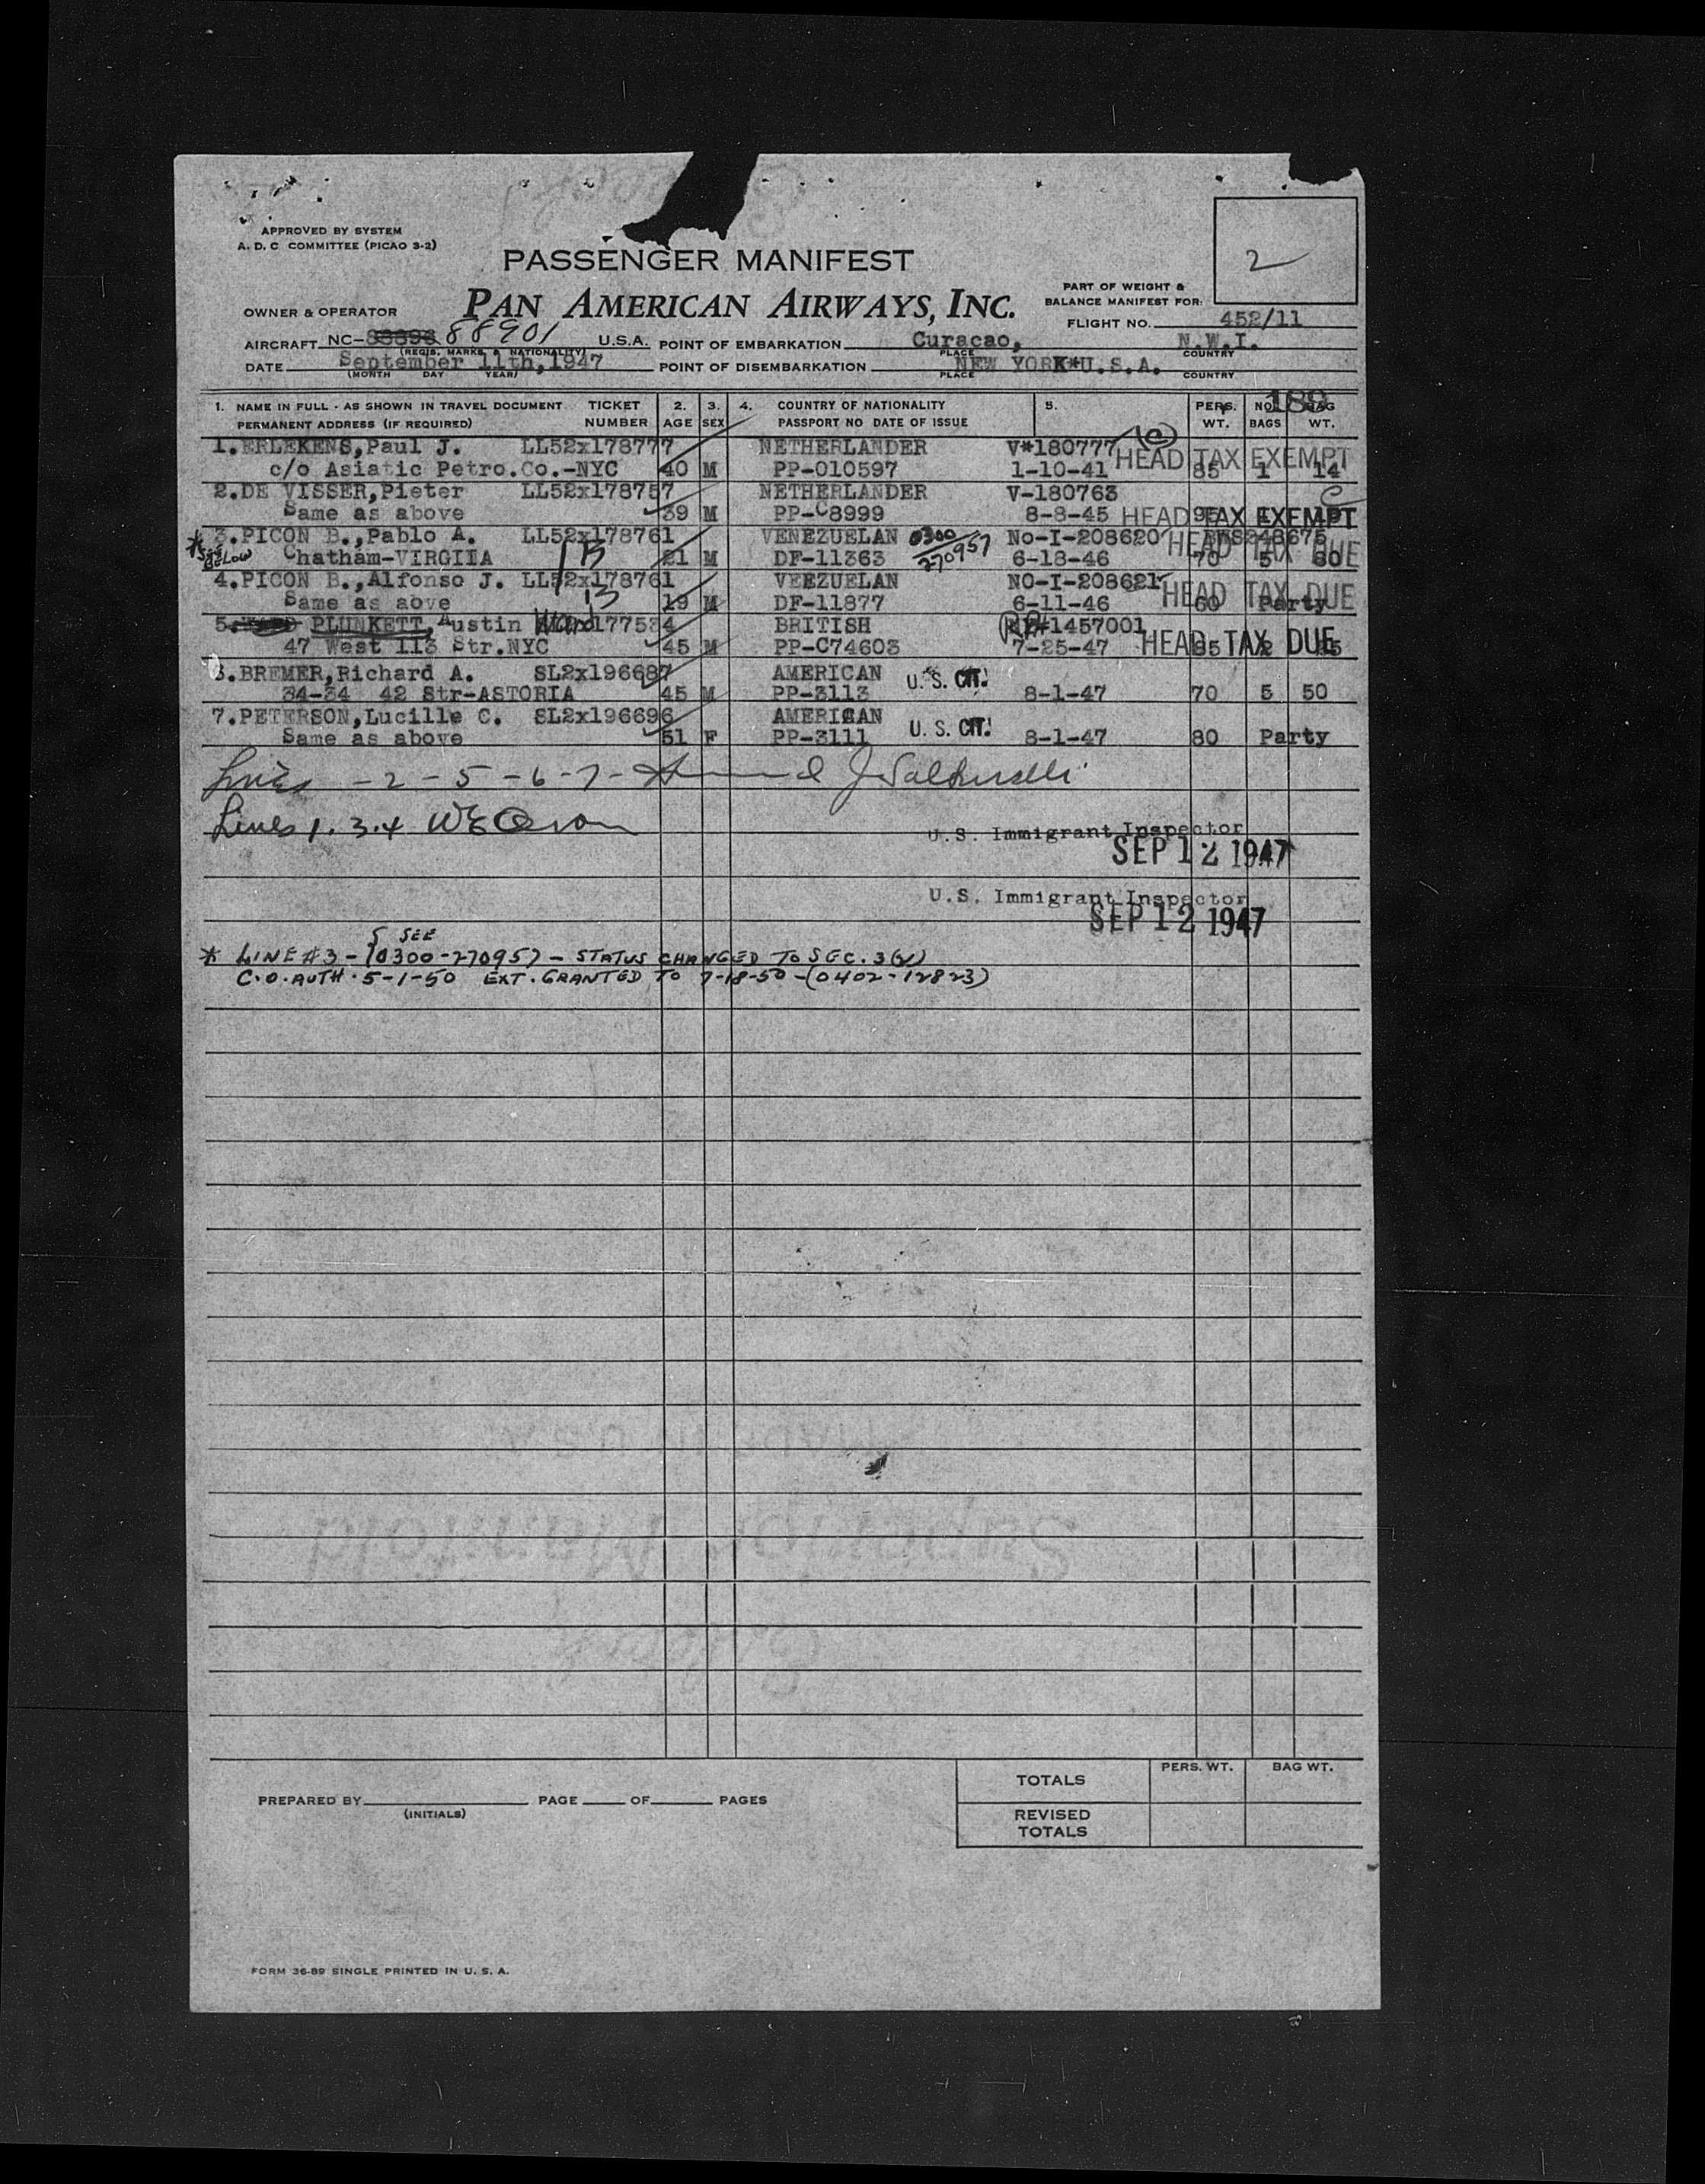 APPROVED BY SYSTEM
A. D. C. COMMITTEE (PICAO 3-2)
PASSENGER MANIFEST
2
PART OF WEIGHT &
BALANCE MANIFEST FOR:
OWNER & OPERATOR PAN AMERICAN AIRWAYS, INC.
FLIGHT NO. 452/11
AIRCRAFT NC- 88901 U.S.A. POINT OF EMBARKATION Curacao, N.W.I.
(REGIS. MARKS & NATIONALITY) PLACE COUNTRY
DATE September 11th, 1947 POINT OF DISEMBARKATION NEW YORK*U.S.A.
(MONTH DAY YEAR) PLACE COUNTRY
189
1. NAME IN FULL - AS SHOWN IN TRAVEL DOCUMENT TICKET 2. 3. 4. COUNTRY OF NATIONALITY 5. PERS. NO. BAG
PERMANENT ADDRESS (IF REQUIRED) NUMBER AGE SEX PASSPORT NO DATE OF ISSUE WT. BAGS WT.
1.ERLEKENS,Paul J. LL52x178777 NETHERLANDER V*180777 HEAD TAX EXEMPT
c/o Asiatic Petro.Co.-NYC 40 M PP-010597 1-10-41 85 1 14
2.DE VISSER,Pieter LL52x178757 NETHERLANDER V-180763
Same as above 39 M PP-C8999 8-8-45 HEAD TAX EXEMPT
*3.PICON B.,Pablo A. LL52x178761 VENEZUELAN 0300 No-I-208620
SEE BELOW Chatham-VIRGIIA 21 M DF-11363 270957 6-18-46 HEAD TAX DUE 70 5 80
4.PICON B.,Alfonso J. LL52x178761 VEEZUELAN NO-I-208621 HEAD TAX DUE
Same as aove 19 M DF-11877 6-11-46 60 Party
5. PLUNKETT, Austin Ward 177534 BRITISH #1457001
47 West 113 Str.NYC 45 M PP-C74603 7-25-47 HEAD TAX DUE
6.BREMER,Richard A. SL2x196687 AMERICAN U. S. CIT.
34-34 42 Str-ASTORIA 45 M PP-3113 8-1-47 70 5 50
7.PETERSON,Lucille C. SL2x196696 AMERICAN U. S. CIT.
Same as above 51 F PP-3111 8-1-47 80 Party
Lines - 2 - 5 - 6 - 7 -
Lines 1. 3.4
U.S. Immigrant Inspector
SEP 12 1947
U.S. Immigrant Inspector
SEP 12 1947
SEE
* LINE #3 - (0300-270957) - STATUS CHANGED TO SEC. 3(2)
C.O. AUTH. 5-1-50 EXT. GRANTED TO 7-18-50 - (0402-12823)
TOTALS PERS. WT. BAG WT.
PREPARED BY PAGE OF PAGES
(INITIALS)
REVISED
TOTALS
FORM 36-89 SINGLE PRINTED IN U. S. A.